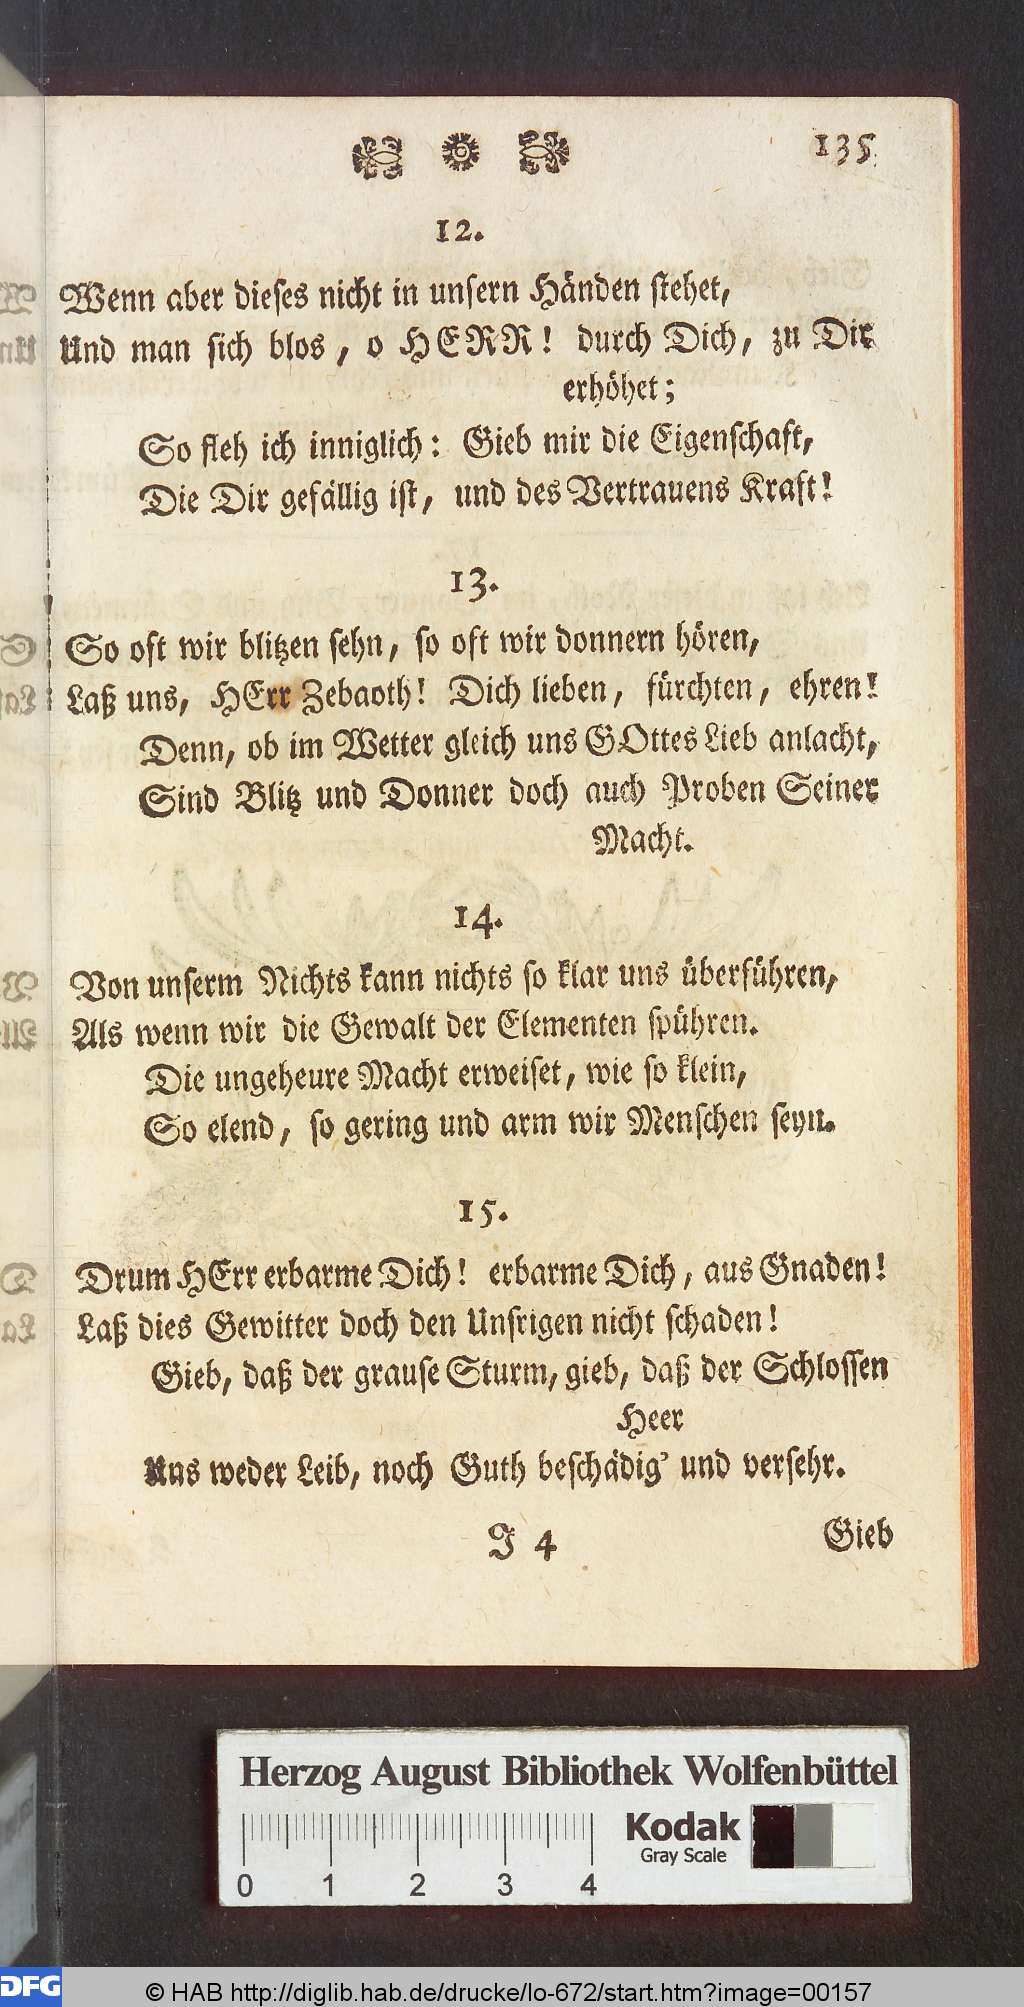 135
12.
Wenn aber dieses nicht in unsern Händen stehet,
Und man sich blos, o HERR! durch Dich, zu Dir
erhöhet;
So fleh ich inniglich: Gieb mir die Eigenschaft,
Die Dir gefällig ist, und des Vertrauens Kraft!
13.
So oft wir blitzen sehn, so oft wir donnern hören,
Laß uns, HErr Zebaoth! Dich lieben, fürchten, ehren!
Denn, ob im Wetter gleich uns GOttes Lieb anlacht,
Sind Blitz und Donner doch auch Proben Seiner
Macht.
14.
Von unserm Nichts kann nichts so klar uns überführen,
Als wenn wir die Gewalt der Elementen spühren.
Die ungeheure Macht erweiset, wie so klein,
So elend, so gering und arm wir Menschen seyn.
15.
Drum HErr erbarme Dich! erbarme Dich, aus Gnaden!
Laß dies Gewitter doch den Unsrigen nicht schaden!
Gieb, daß der grause Sturm, gieb, daß der Schlossen
Heer
Uns weder Leib, noch Guth beschädig' und versehr.
J 4
Gieb
Herzog August Bibliothek Wolfenbüttel
Kodak
Gray Scale
0 1 2 3 4
DFG
© HAB http://diglib.hab.de/drucke/lo-672/start.htm?image=00157